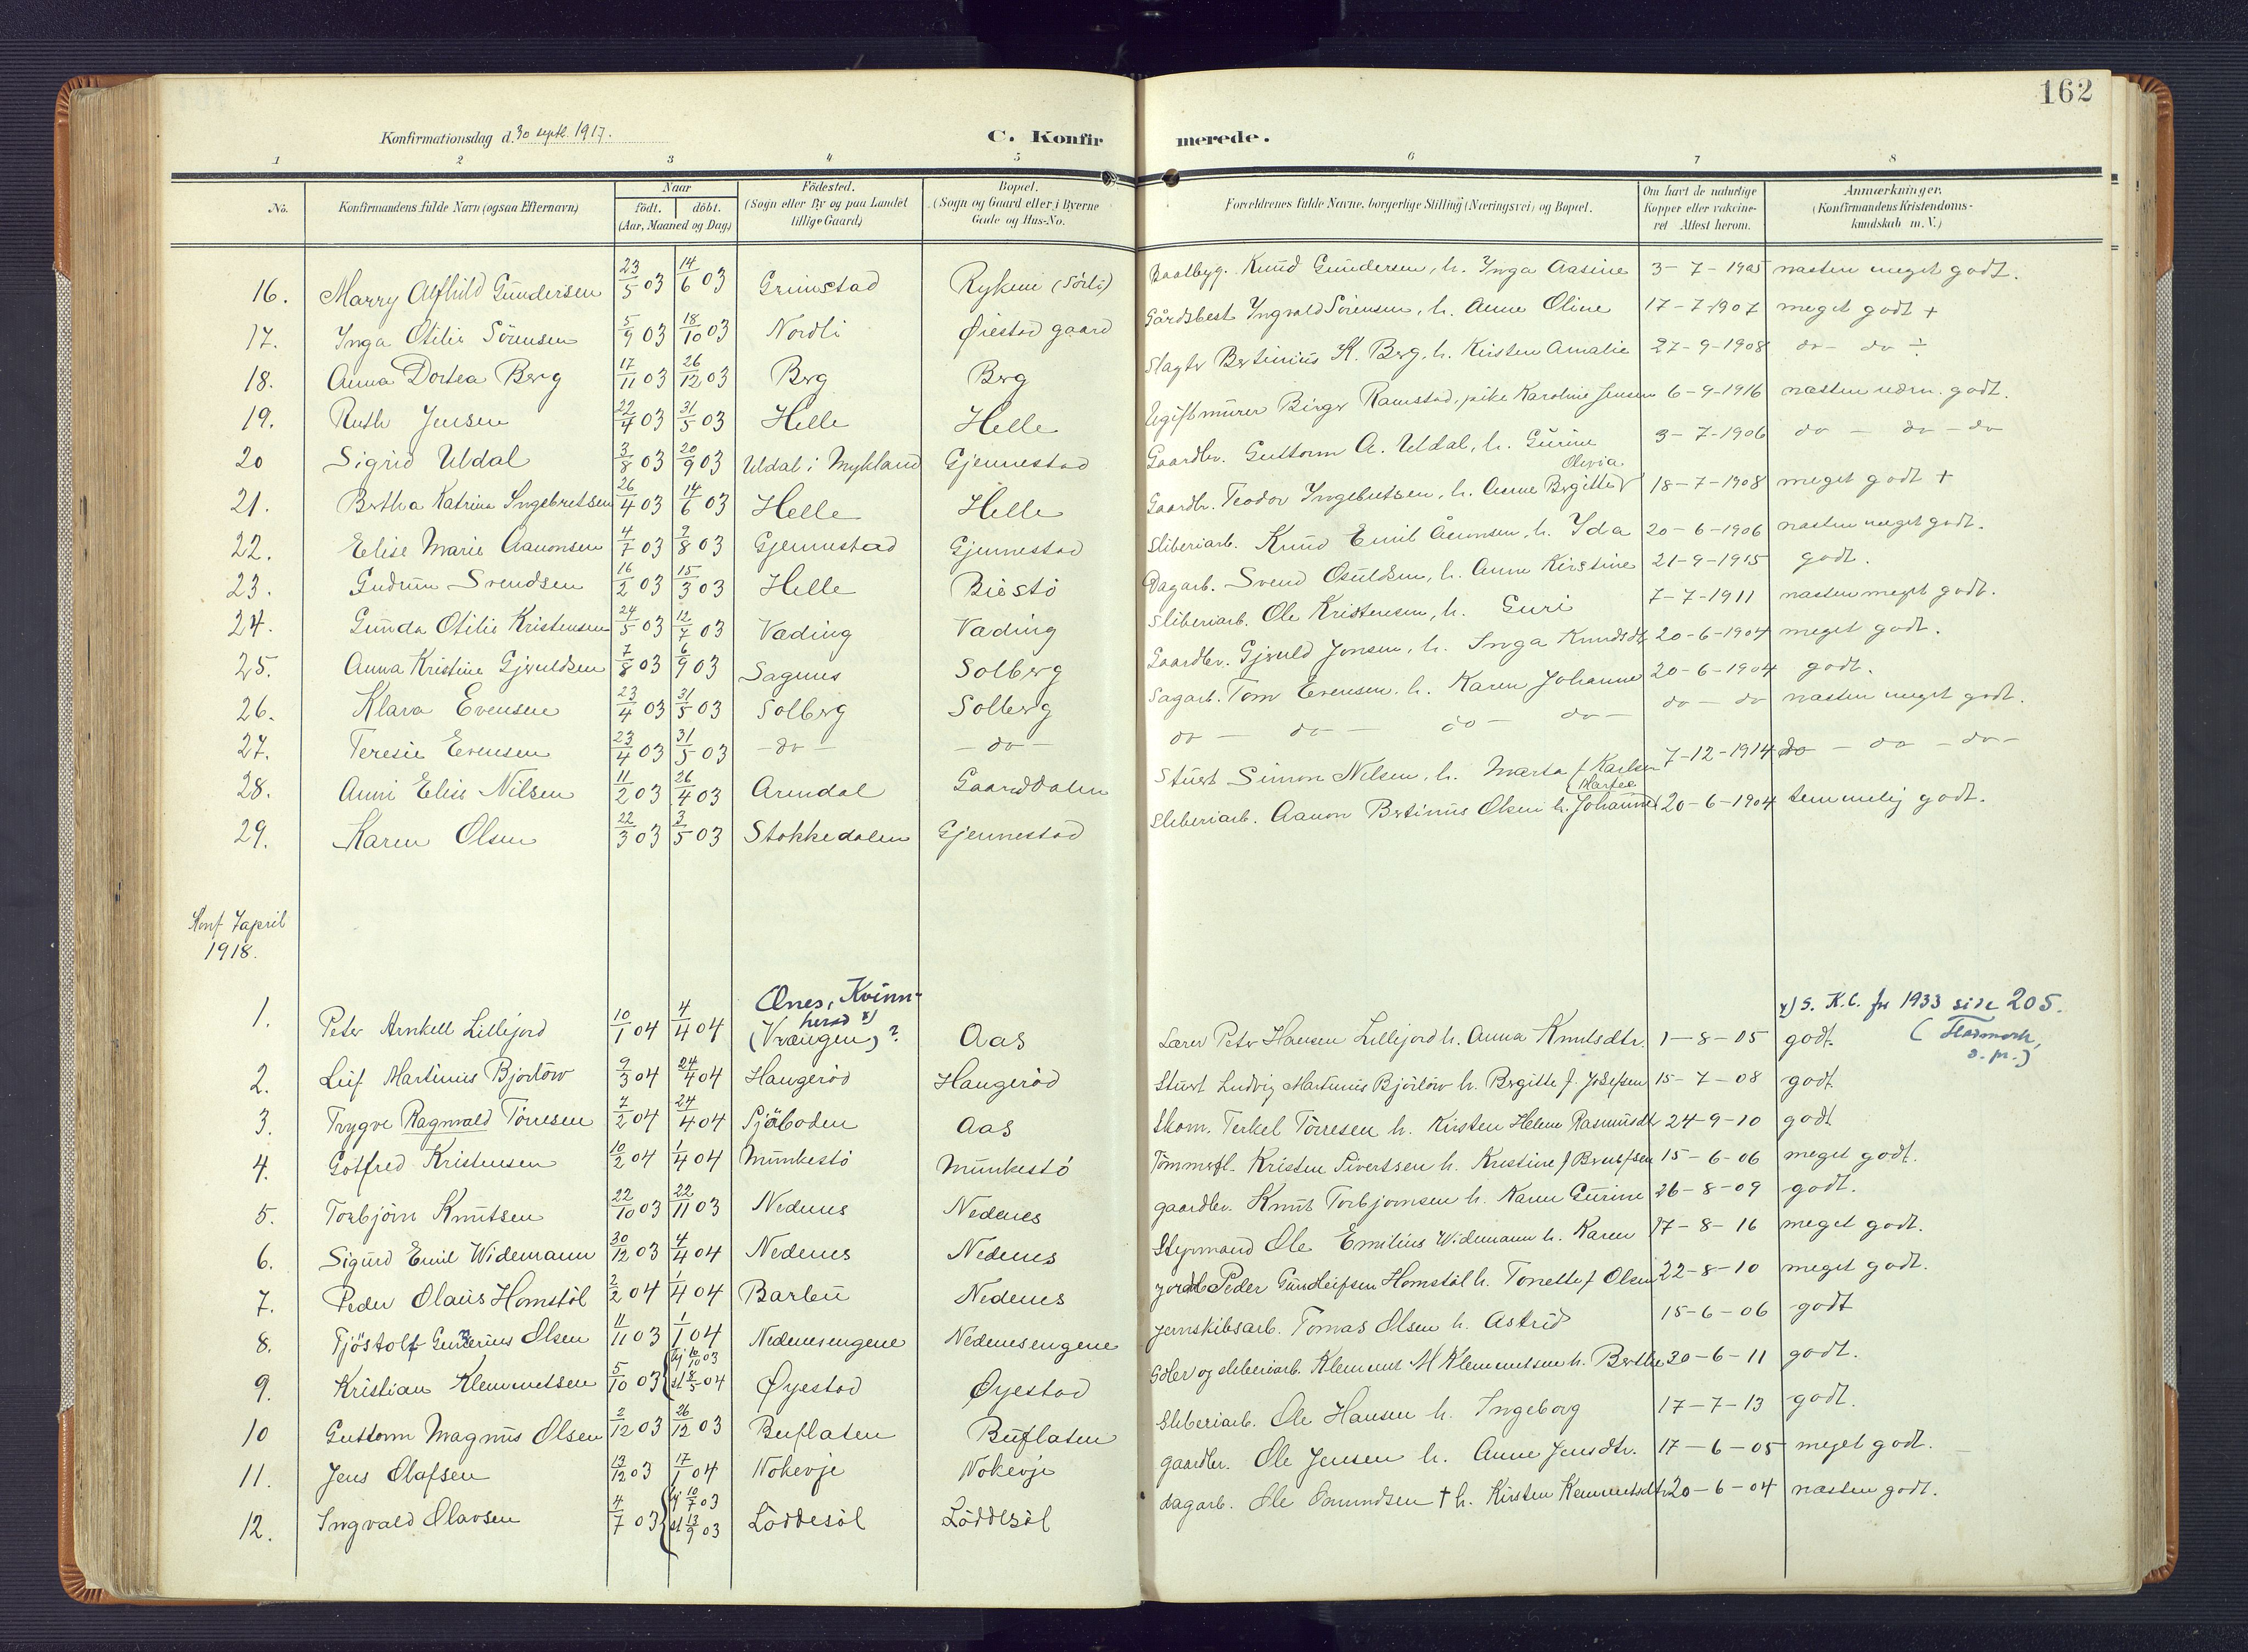 162
Konfirmationsdag d. 30 septr. 1917.
C. Konfirmerede.
1 2 3 4 5 6 7 8
No. Konfirmandens fulde Navn (ogsaa Efternavn) Naar födt. döbt. (Aar, Maaned og Dag) Födested. (Sogn eller By og paa Landet tillige Gaard) Bopæl. (Sogn og Gaard eller i Byerne Gade og Hus-No. Forældrenes fulde Navne, borgerlige Stilling (Næringsvei) og Bopæl. Om havt de naturlige Kopper eller vakcineret Attest herom. Anmærkninger. (Konfirmandens Kristendomskundskab m. V.)
16. Marry Alfhild Gundersen 23/5 03 14/6 03 Grimstad Rykene (Sörli) Baatbyg. Knud Gundersen, h. Inga Aasine 3-7-1905 næsten meget godt.
17. Inga Otilie Sörensen 5/9 03 18/10 03 Nordli Øiestad gaard Gårdsbest Ingvald Sörensen, h. Anne Oline 17-7-1907 meget godt +
18. Anna Dortea Berg 17/11 03 26/12 03 Berg Berg Slagtr Bertinius K. Berg, h. Kirsten Amalie 27-9-1908 do - do ÷
19. Ruth Jensen 22/4 03 31/5 03 Helle Helle Ugift murer Birger Ramstad, pike Karoline Jensen 6-9-1916 næsten udm. godt.
20 Sigrid Uldal 3/8 03 20/9 03 Uldal i Mykland Gjennestad Gaardbr. Guttorm A. Uldal, h. Gurine 3-7-1906 do - do - do
21. Bertha Katrine Ingebretsen 26/4 03 14/6 03 Helle Helle Gaardbr. Teodor Ingebretsen, h. Anne Birgitte Olivia 18-7-1908 meget godt +
22. Elise Marie Aanonsen 4/7 03 2/8 03 Gjennestad Gjennestad Sliberiarb. Knud Emil Ånonsen, h. Ida 20-6-1906 næsten meget godt.
23. Gudrun Svendsen 16/2 03 15/3 03 Helle Biestö Dagarb. Svend Osuldsen, h. Anne Kirstine 21-9-1915 godt.
24. Gunda Otilie Kristensen 24/5 03 12/7 03 Vading Vading Sliberiarb. Ole Kristensen, h. Guri 7-7-1911 næsten meget godt.
25. Anna Kristine Gjeruldsen 7/8 03 6/9 03 Sagnes Solberg Gaardbr. Gjeruld Jensen, h. Inga Knudsdtr 20-6-1904 meget godt.
26. Klara Evensen 23/4 03 31/5 03 Solberg Solberg Sagarb. Tom Evensen. h. Karen Johanne 20-6-1904 godt.
27. Teresie Evensen 23/4 03 31/5 03 - do - - do - do - do - do - do - do - do næsten meget godt.
28. Anni Elise Nilsen 11/2 03 26/4 03 Arendal Gaarddalen Stuert Simon Nilsen, h. Marta f. Karlsen 7-12-1914 do - do - do -
29. Karen Olsen 22/3 03 3/5 03 Stokkedalen Gjennestad Sliberiarb. Aanon Bertinius Olsen h. Johanne 20-6-1904 temmelig godt.
Konf 7 april
1918.
1. Peter Arnkell Lillejord 10/1 04 4/4 04 Ænes, Kvinnherad x) (Vrængen) ? Aas Lærer Peter Hansen Lillejord h. Anna Knutsdtr. 1-8-05 godt. x) S. K.C. for 1933 side 205.
2. Leif Martinius Bjorlöw 9/3 04 24/4 04 Haugeröd Haugeröd Stuert Ludvig Martinius Bjorlöw h. Birgitte f. Josefsen 15-7-08 godt.
3. Trygve Ragnvald Törresen 7/2 04 24/4 04 Sjöboden Aas Skom. Terkel Törresen h. Kirsten Helene Rasmusdtr 24-9-10 godt
4. Gotfred Kristensen 10/2 04 1/4 04 Munkestö Munkestö Tömmerfl. Kristen Sivertsen h. Kristine f Berntsen 15-6-06 meget godt.
5. Torbjörn Knutsen 22/10 03 22/11 03 Nedenes Nedenes gaardbr. Knut Torbjornsen h. Karen Gurine 26-8-09 godt.
6. Sigurd Emil Widemann 30/12 03 4/4 04 Nedenes Nedenes Styrmand Ole Emilius Widemann h. Karen 17-8-16 meget godt.
7. Peder Olaus Homstöl 2/2 04 1/4 04 Barbu Nedenes Peder Gundleifsen Homstöl h. Tonette f Olsen 22-8-10 meget godt.
8. Tjöstolf Gunerius Olsen 11/11 03 1/1 04 Nedenesengene Nedenesengene jernskibsarb. Tomas Olsen h. Astrid 15-6-06 godt
9. Kristian Klemmetsen 5/10 03 hj 6/10 03 st 8/5 04 Øyestad Øyestad og sliberiarb. Klemmet M Klemmetsen h. Berthe 30-6-11 godt.
10 Guttorm Magnus Olsen 2/12 03 26/12 03 Buflaten Buflaten Sliberiarb. Ole Hansen h. Ingeborg 17-7-13 godt.
11. Jens Olafsen 13/12 03 17/1 04 Nokevje Nokevje gaardbr. Ole Jensen h. Anne Jensdtr. 17-6-05 meget godt.
12. Ingvald Olavsen 4/7 03 hj 10/7 03 st 13/9 03 Löddesöl Löddesöl dagarb. Ole Omundsen † h. Kirsten Kemmetsdtr 20-6-04 næsten godt.